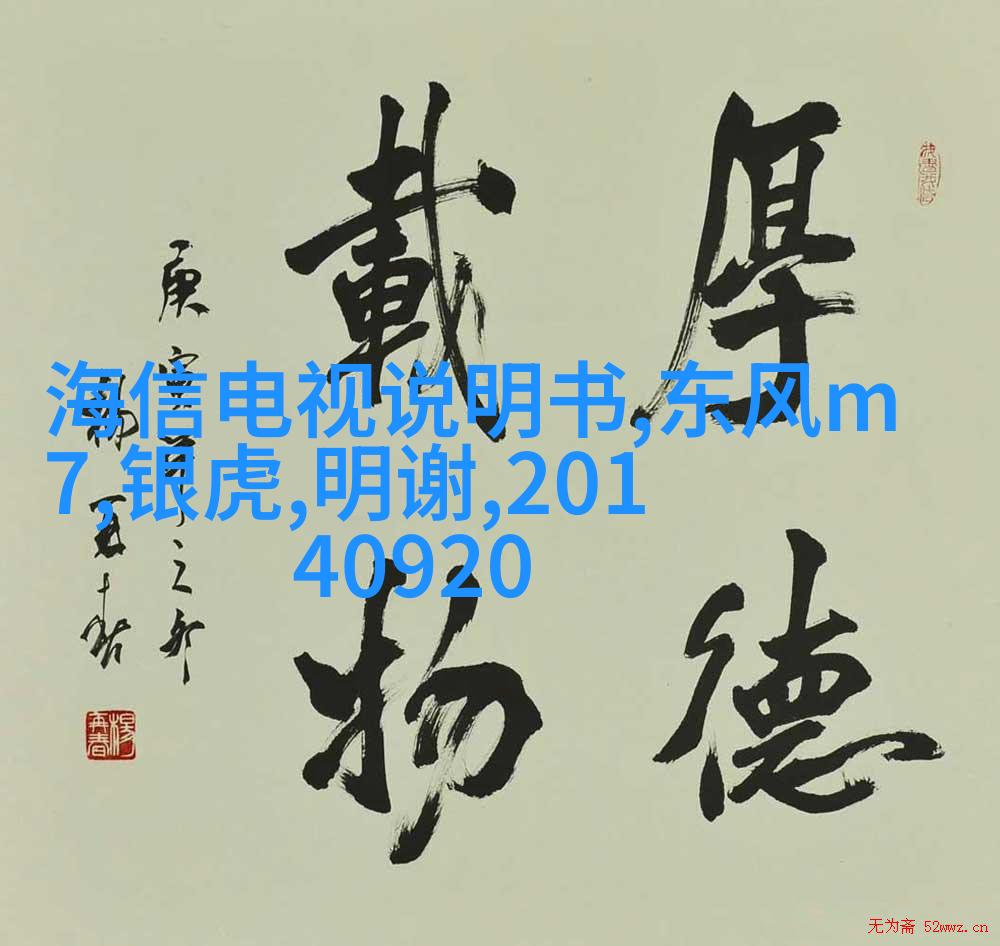 厚德
載物
楊再春
海信电视说明书,东风m
7,银虎,明谢,201
40920
无为斋 52wwz.cn